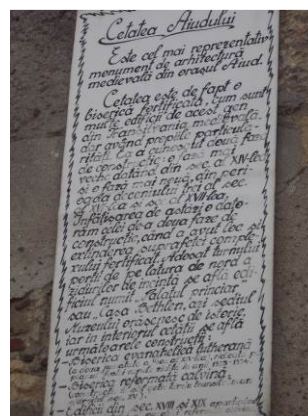 Cetatea Aiudului
Este cel mai reprezentativ
monument de arhitectură
medievală din orașul Aiud.
Cetatea este de fapt o
biserică fortificată, cum sunt
multe edificii de acest gen
din Transilvania medievală,
dar având propriile particula-
rități. Ea a cunoscut două faze
de construcție: o fază mai
veche, datând din sec. al XIV-lea
și o fază mai nouă, din peri-
oada
al XVI-lea și sec. al XVII-lea.
Înfățișarea de astăzi o dato-
răm celei de-a doua faze de
construcție, când a avut loc și
extinderea suprafeței comple-
xului fortificat. Adosat turnului
porții de pe latura de nord a
zidurilor de incintă se află edi-
ficiul numit "Palatul princiar"
sau "Casa Bethlen", azi sediul
Muzeului orășenesc de istorie,
iar în interiorul cetății se află
următoarele construcții:
- Biserica evanghelică lutherană
- Biserica reformată calvină
- Edificii din sec. XVIII și XIX